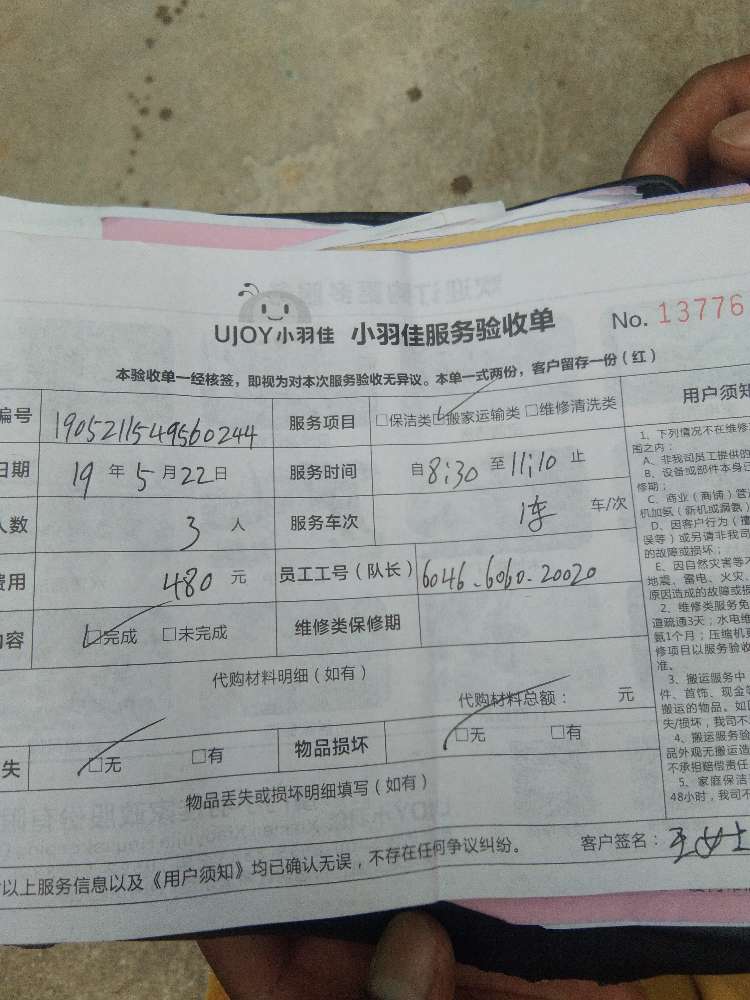 UJOY小羽佳 小羽佳服务验收单 No. 13776
本验收单一经核签，即视为对本次服务验收无异议。本单一式两份，客户留存一份（红）
编号 1905211549560244 服务项目 □保洁类 □搬家运输类 □维修清洗类
日期 19 年 5 月 22 日 服务时间 自 8:30 至 11:10 止
人数 3 人 服务车次 1车 车/次
费用 480 元 员工工号（队长） 6046.6060.20020
内容 □完成 □未完成 维修类保修期
代购材料明细（如有）
代购材料总额： 元
失 □无 □有 物品损坏 □无 □有
物品丢失或损坏明细填写（如有）
以上服务信息以及《用户须知》均已确认无误，不存在任何争议纠纷。 客户签名：王女士
用户须
1、下列情况不在维修
围之内：
A、非我司员工提供的
B、设备或部件本身已
修期；
C、商业（商铺）管
机加氨（新机或漏氨）
D、因客户行为（擅
误等）或另请非我司
的故障或损坏；
E、因自然灾害等不
地震、雷电、火灾、
原因造成的故障或损
2、维修类服务免
道疏通3天；水电维
氨1个月；压缩机更
修项目以服务验收
准。
3、搬运服务中
件、首饰、现金等
搬运的物品。如
失/损坏，我司不
4、搬运服务验
品外观无搬运造
不承担赔偿责任
5、家庭保洁
48小时，我司不